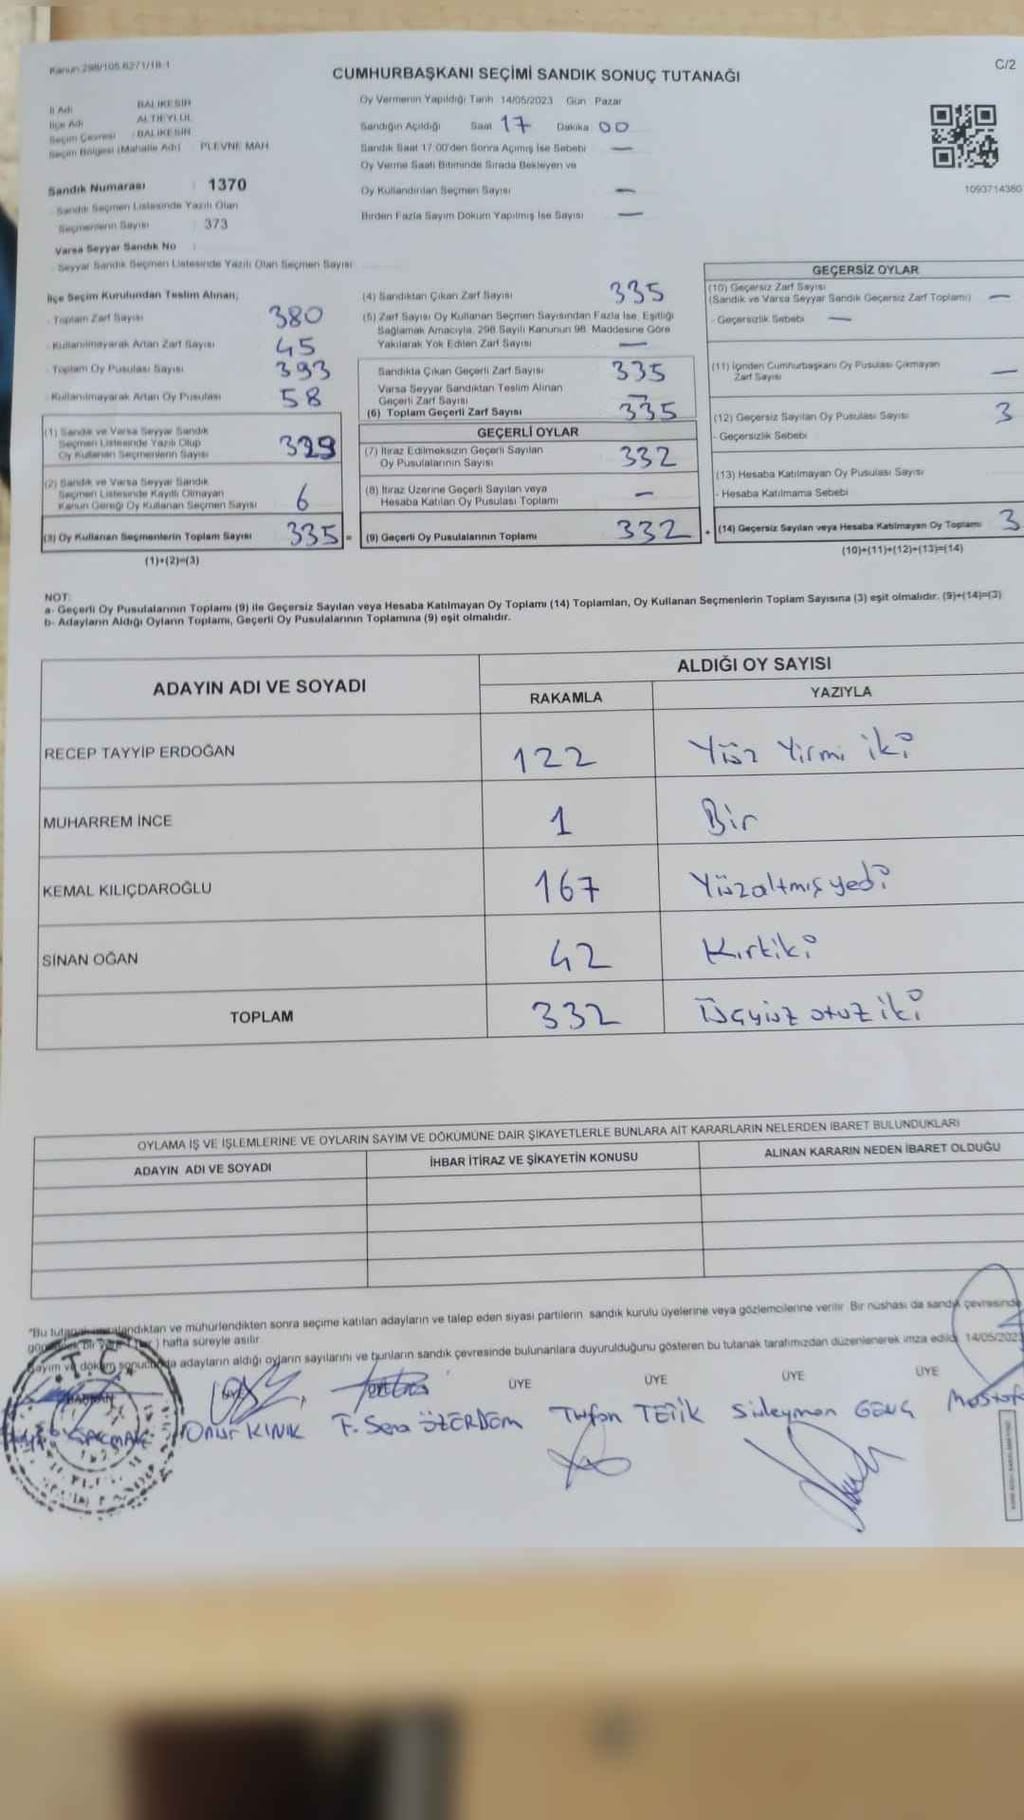 Kanun 298/105.6271/18-1
C/2
CUMHURBAŞKANI SEÇİMİ SANDIK SONUÇ TUTANAĞI
İl Adı BALIKESİR
İlçe Adı ALTIEYLÜL
Seçim Çevresi BALIKESİR
Seçim Bölgesi (Mahalle Adı) PLEVNE MAH
Sandık Numarası : 1370
Sandık Seçmen Listesinde Yazılı Olan
Seçmenlerin Sayısı : 373
Varsa Seyyar Sandık No :
Seyyar Sandık Seçmen Listesinde Yazılı Olan Seçmen Sayısı
Oy Vermenin Yapıldığı Tarih 14/05/2023 Gün Pazar
Sandığın Açıldığı Saat 17 Dakika 00
Sandık Saat 17:00'den Sonra Açılmış İse Sebebi —
Oy Verme Saati Bitiminde Sırada Bekleyen ve
Oy Kullandırılan Seçmen Sayısı —
Birden Fazla Sayım Döküm Yapılmış İse Sayısı —
1093714380
İlçe Seçim Kurulundan Teslim Alınan;
- Toplam Zarf Sayısı 380
- Kullanılmayarak Artan Zarf Sayısı 45
- Toplam Oy Pusulası Sayısı 393
- Kullanılmayarak Artan Oy Pusulası 58
(1) Sandık ve Varsa Seyyar Sandık
Seçmen Listesinde Yazılı Olup
Oy Kullanan Seçmenlerin Sayısı 329
(2) Sandık ve Varsa Seyyar Sandık
Seçmen Listesinde Kayıtlı Olmayan
Kanun Gereği Oy Kullanan Seçmen Sayısı 6
(3) Oy Kullanan Seçmenlerin Toplam Sayısı 335 =
(1)+(2)=(3)
(4) Sandıktan Çıkan Zarf Sayısı 335
(5) Zarf Sayısı Oy Kullanan Seçmen Sayısından Fazla İse, Eşitliği
Sağlamak Amacıyla, 298 Sayılı Kanunun 98. Maddesine Göre
Yakılarak Yok Edilen Zarf Sayısı —
Sandıkta Çıkan Geçerli Zarf Sayısı 335
Varsa Seyyar Sandıktan Teslim Alınan
Geçerli Zarf Sayısı —
(6) Toplam Geçerli Zarf Sayısı 335
GEÇERLİ OYLAR
(7) İtiraz Edilmeksizin Geçerli Sayılan
Oy Pusulalarının Sayısı 332
(8) İtiraz Üzerine Geçerli Sayılan veya
Hesaba Katılan Oy Pusulası Toplamı —
(9) Geçerli Oy Pusulalarının Toplamı 332 +
GEÇERSİZ OYLAR
(10) Geçersiz Zarf Sayısı
(Sandık ve Varsa Seyyar Sandık Geçersiz Zarf Toplamı) —
- Geçersizlik Sebebi —
(11) İçinden Cumhurbaşkanı Oy Pusulası Çıkmayan
Zarf Sayısı —
(12) Geçersiz Sayılan Oy Pusulası Sayısı 3
- Geçersizlik Sebebi
(13) Hesaba Katılmayan Oy Pusulası Sayısı
- Hesaba Katılmama Sebebi
(14) Geçersiz Sayılan veya Hesaba Katılmayan Oy Toplamı 3
(10)+(11)+(12)+(13)=(14)
NOT:
a- Geçerli Oy Pusulalarının Toplamı (9) ile Geçersiz Sayılan veya Hesaba Katılmayan Oy Toplamı (14) Toplamları, Oy Kullanan Seçmenlerin Toplam Sayısına (3) eşit olmalıdır. (9)+(14)=(3)
b- Adayların Aldığı Oyların Toplamı, Geçerli Oy Pusulalarının Toplamına (9) eşit olmalıdır.
ADAYIN ADI VE SOYADI
ALDIĞI OY SAYISI
RAKAMLA YAZIYLA
RECEP TAYYİP ERDOĞAN 122 Yüz Yirmi iki
MUHARREM İNCE 1 Bir
KEMAL KILIÇDAROĞLU 167 Yüzaltmışyedi
SİNAN OĞAN 42 Kırkiki
TOPLAM 332 Üçyüz otuz iki
OYLAMA İŞ VE İŞLEMLERİNE VE OYLARIN SAYIM VE DÖKÜMÜNE DAİR ŞİKAYETLERLE BUNLARA AİT KARARLARIN NELERDEN İBARET BULUNDUKLARI
ADAYIN ADI VE SOYADI İHBAR İTİRAZ VE ŞİKAYETİN KONUSU ALINAN KARARIN NEDEN İBARET OLDUĞU
"Bu tutanak imzalandıktan ve mühürlendikten sonra seçime katılan adayların ve talep eden siyasi partilerin sandık kurulu üyelerine veya gözlemcilerine verilir. Bir nüshası da sandık çevresinde
bir hafta süreyle asılır.
Sayım ve döküm sonucunda adayların aldığı oyların sayılarını ve bunların sandık çevresinde bulunanlara duyurulduğunu gösteren bu tutanak tarafımızdan düzenlenerek imza edildi. 14/05/2023
BAŞKAN ÜYE ÜYE ÜYE ÜYE
Onur KINIK F. Sera ÖZERDEM Tufan TETİK Süleyman GENÇ Mustafa
T.C.